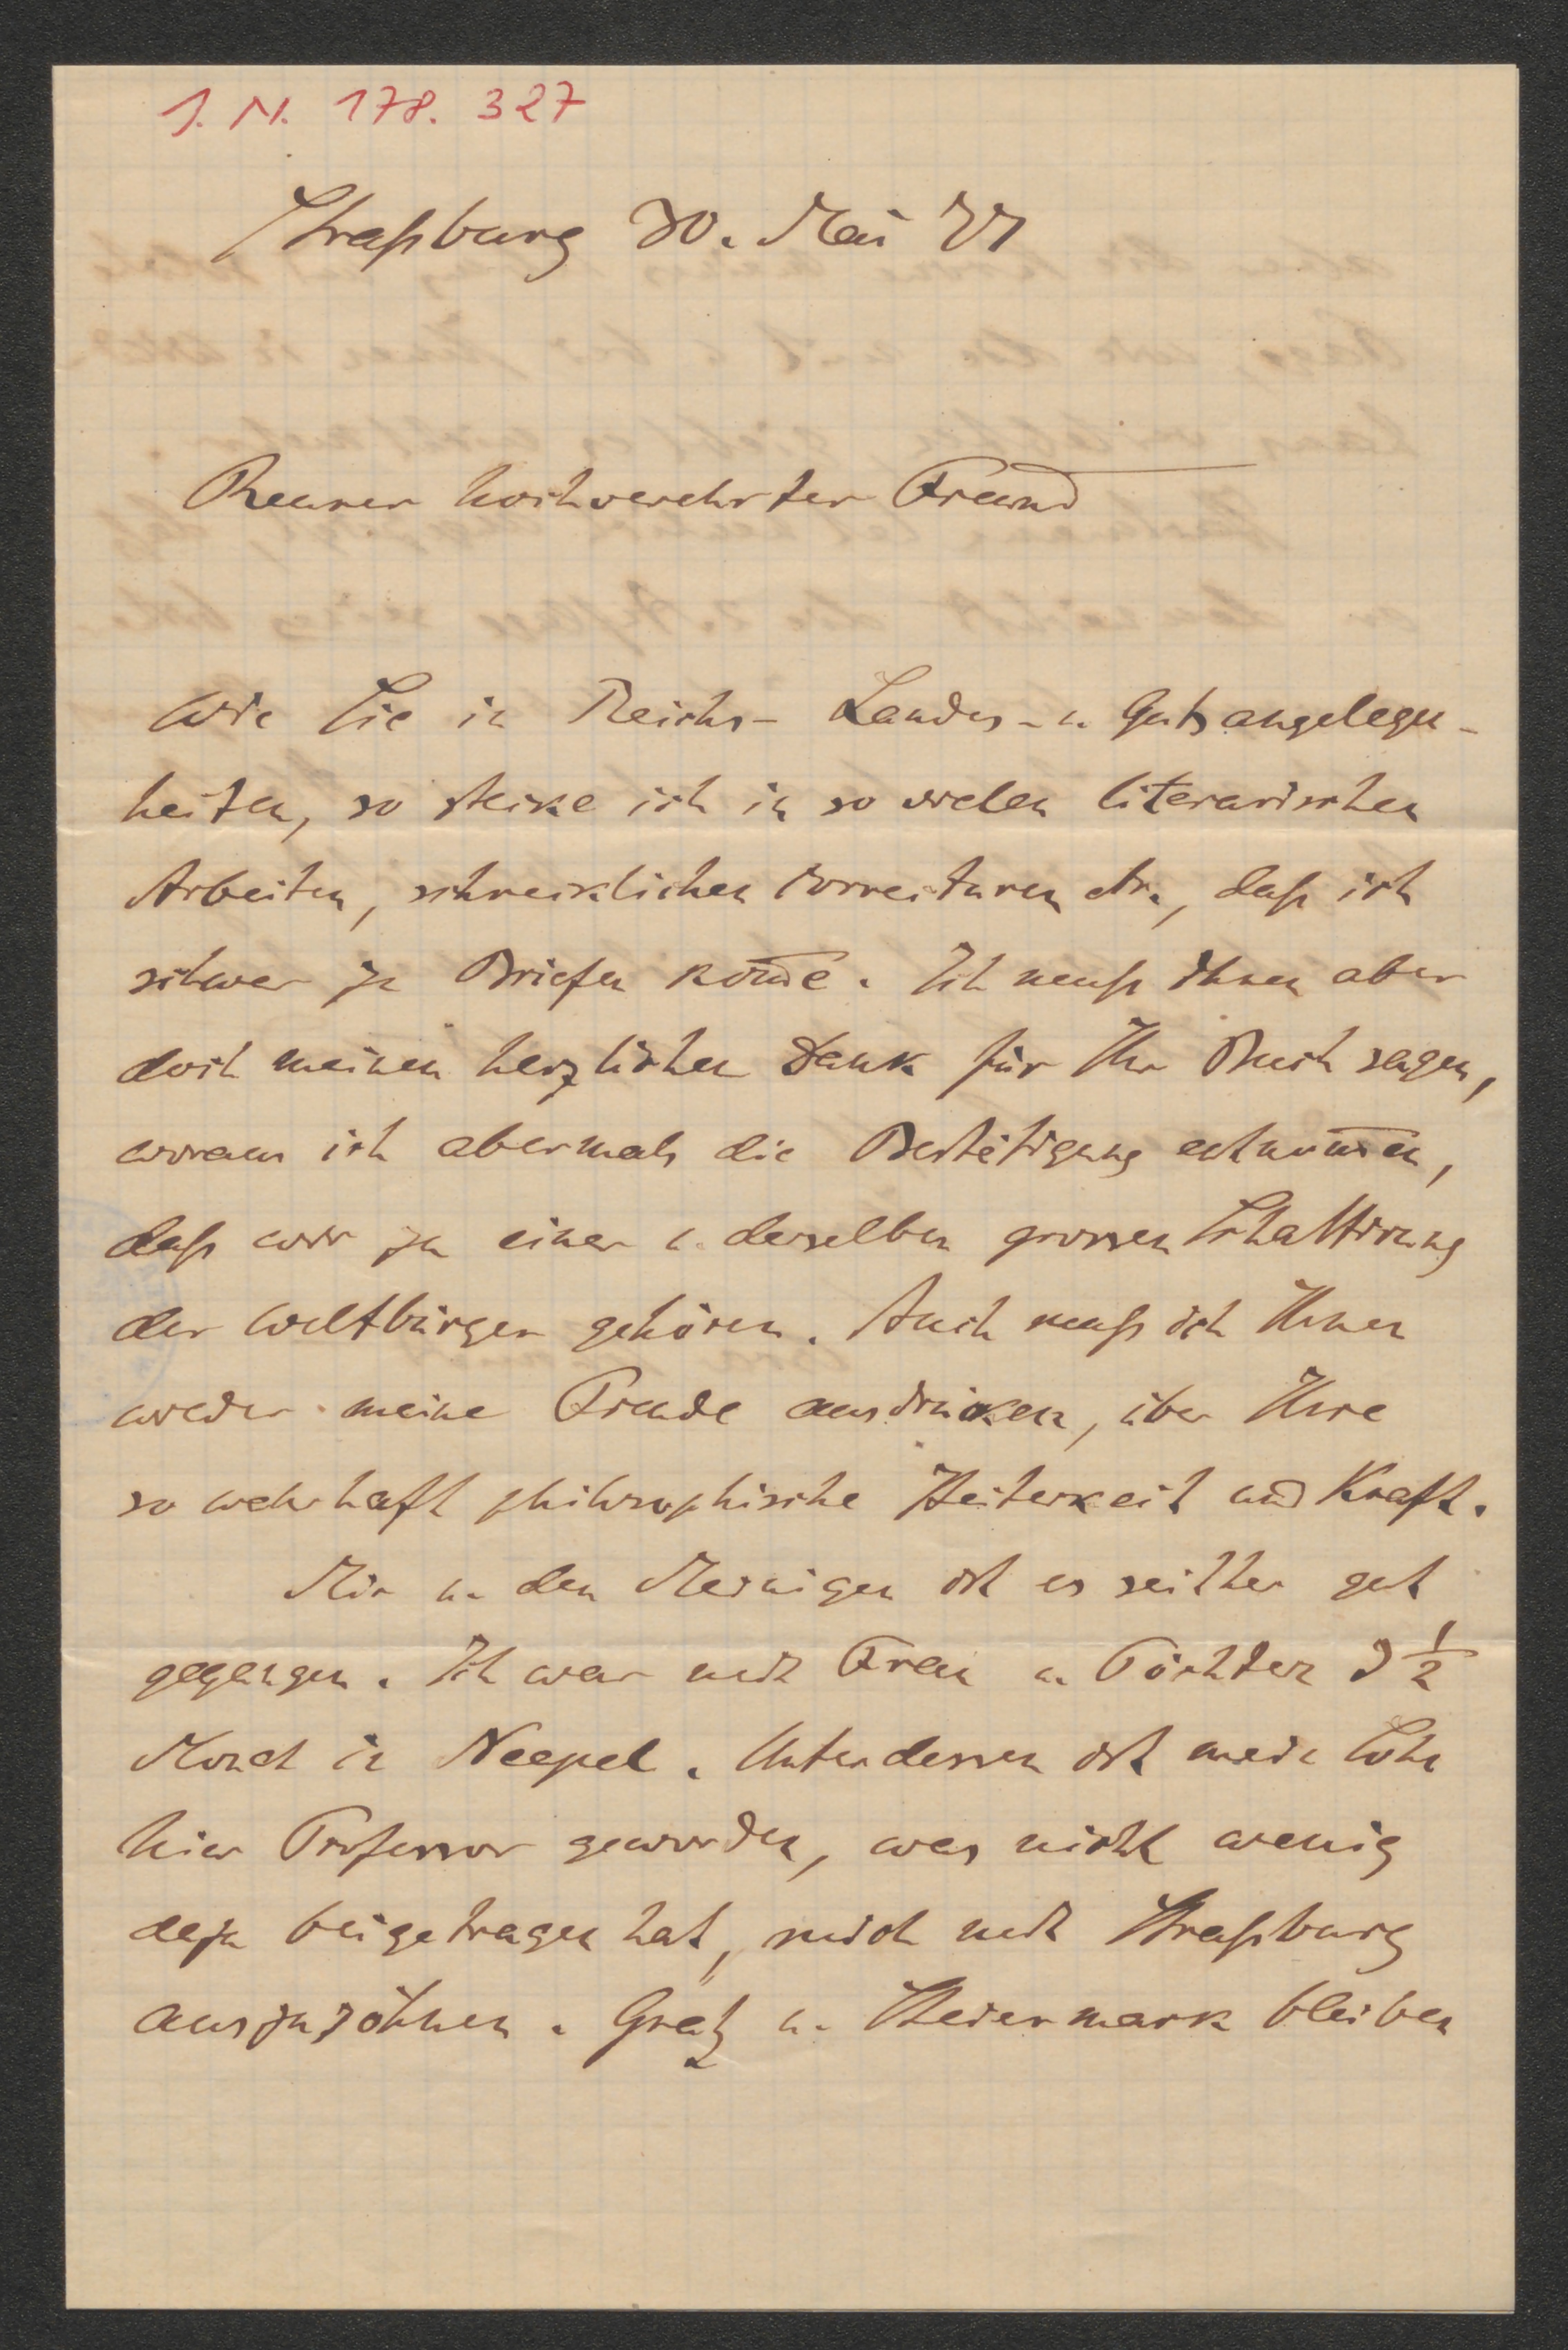 I. N. 178. 327
Straßburg 30. Mai 77
Theurer hochverehrter Freund
Wie Sie in Reichs- Landes- u. Gutsangelegen-
heiten, so stecke ich in so vielen literarischen
Arbeiten, schrecklichen Correcturen etc., daß ich
schwer zu Briefen kom̄e. Ich muß Ihnen aber
doch meinen herzlichen Dank für Ihr Buch sagen,
woraus ich abermals die Bestätigung entnom̄en,
daß wir zu einer u. derselben grossen Schattirung
der Weltbürger gehören. Auch muß ich Ihnen
wieder meine Freude ausdrücken, über Ihre
so wahrhaft philosophische Heiterkeit und Kraft.
Mir u. den Meinigen ist es seither gut
gegangen. Ich war mit Frau u. Töchter 3 ½
Monat in Neapel. Unterdessen ist mein Sohn
hier Professor geworden, was nicht wenig
dazu beigetragen hat, mich mit Straßburg
auszusöhnen. Gratz u. Steiermark bleiben